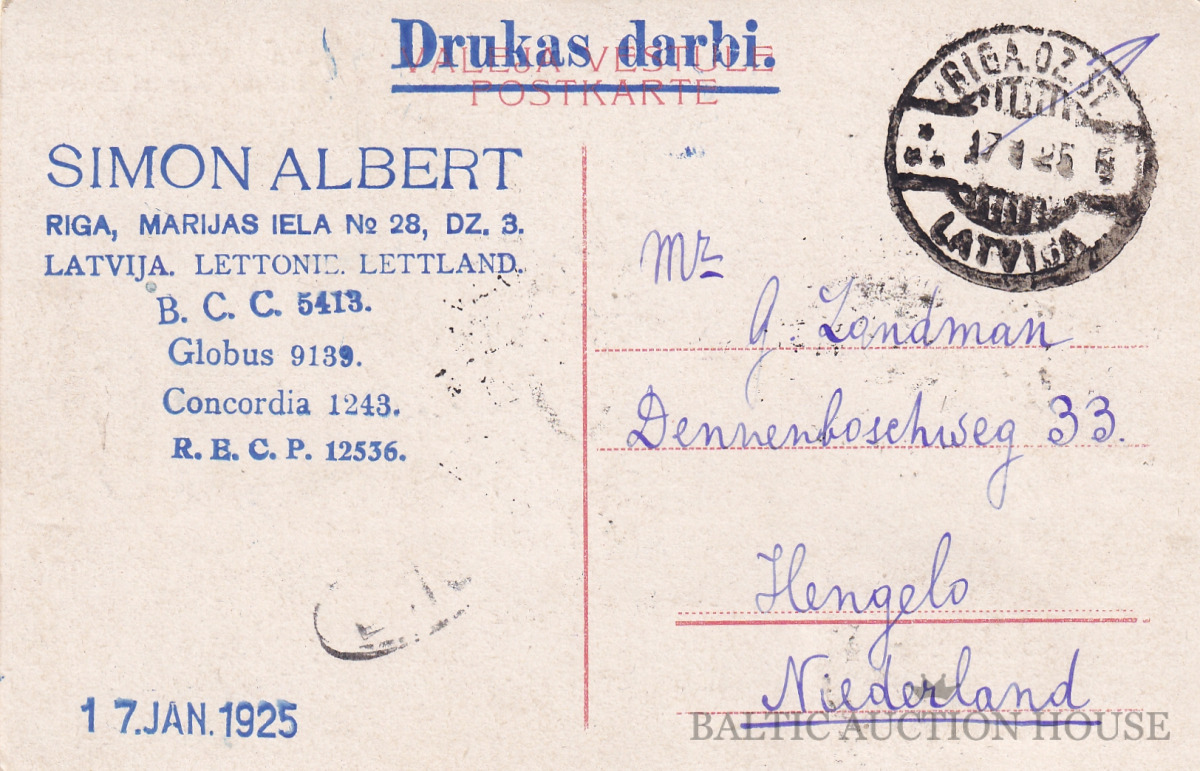 Drukas darbi.
VAĻĒJA VĒSTULE
POSTKARTE
SIMON ALBERT
RIGA, MARIJAS IELA № 28, DZ. 3.
LATVIJA. LETTONIE. LETTLAND.
B. C. C. 5413.
Globus 9139.
Concordia 1243.
R. E. C. P. 12536.
17.JAN.1925
RIGA.DZ.ST.
17 1 25
LATVIJA
Mr
G. Landman
Dennenboschweg 33.
Hengelo
Niederland
BALTIC AUCTION HOUSE